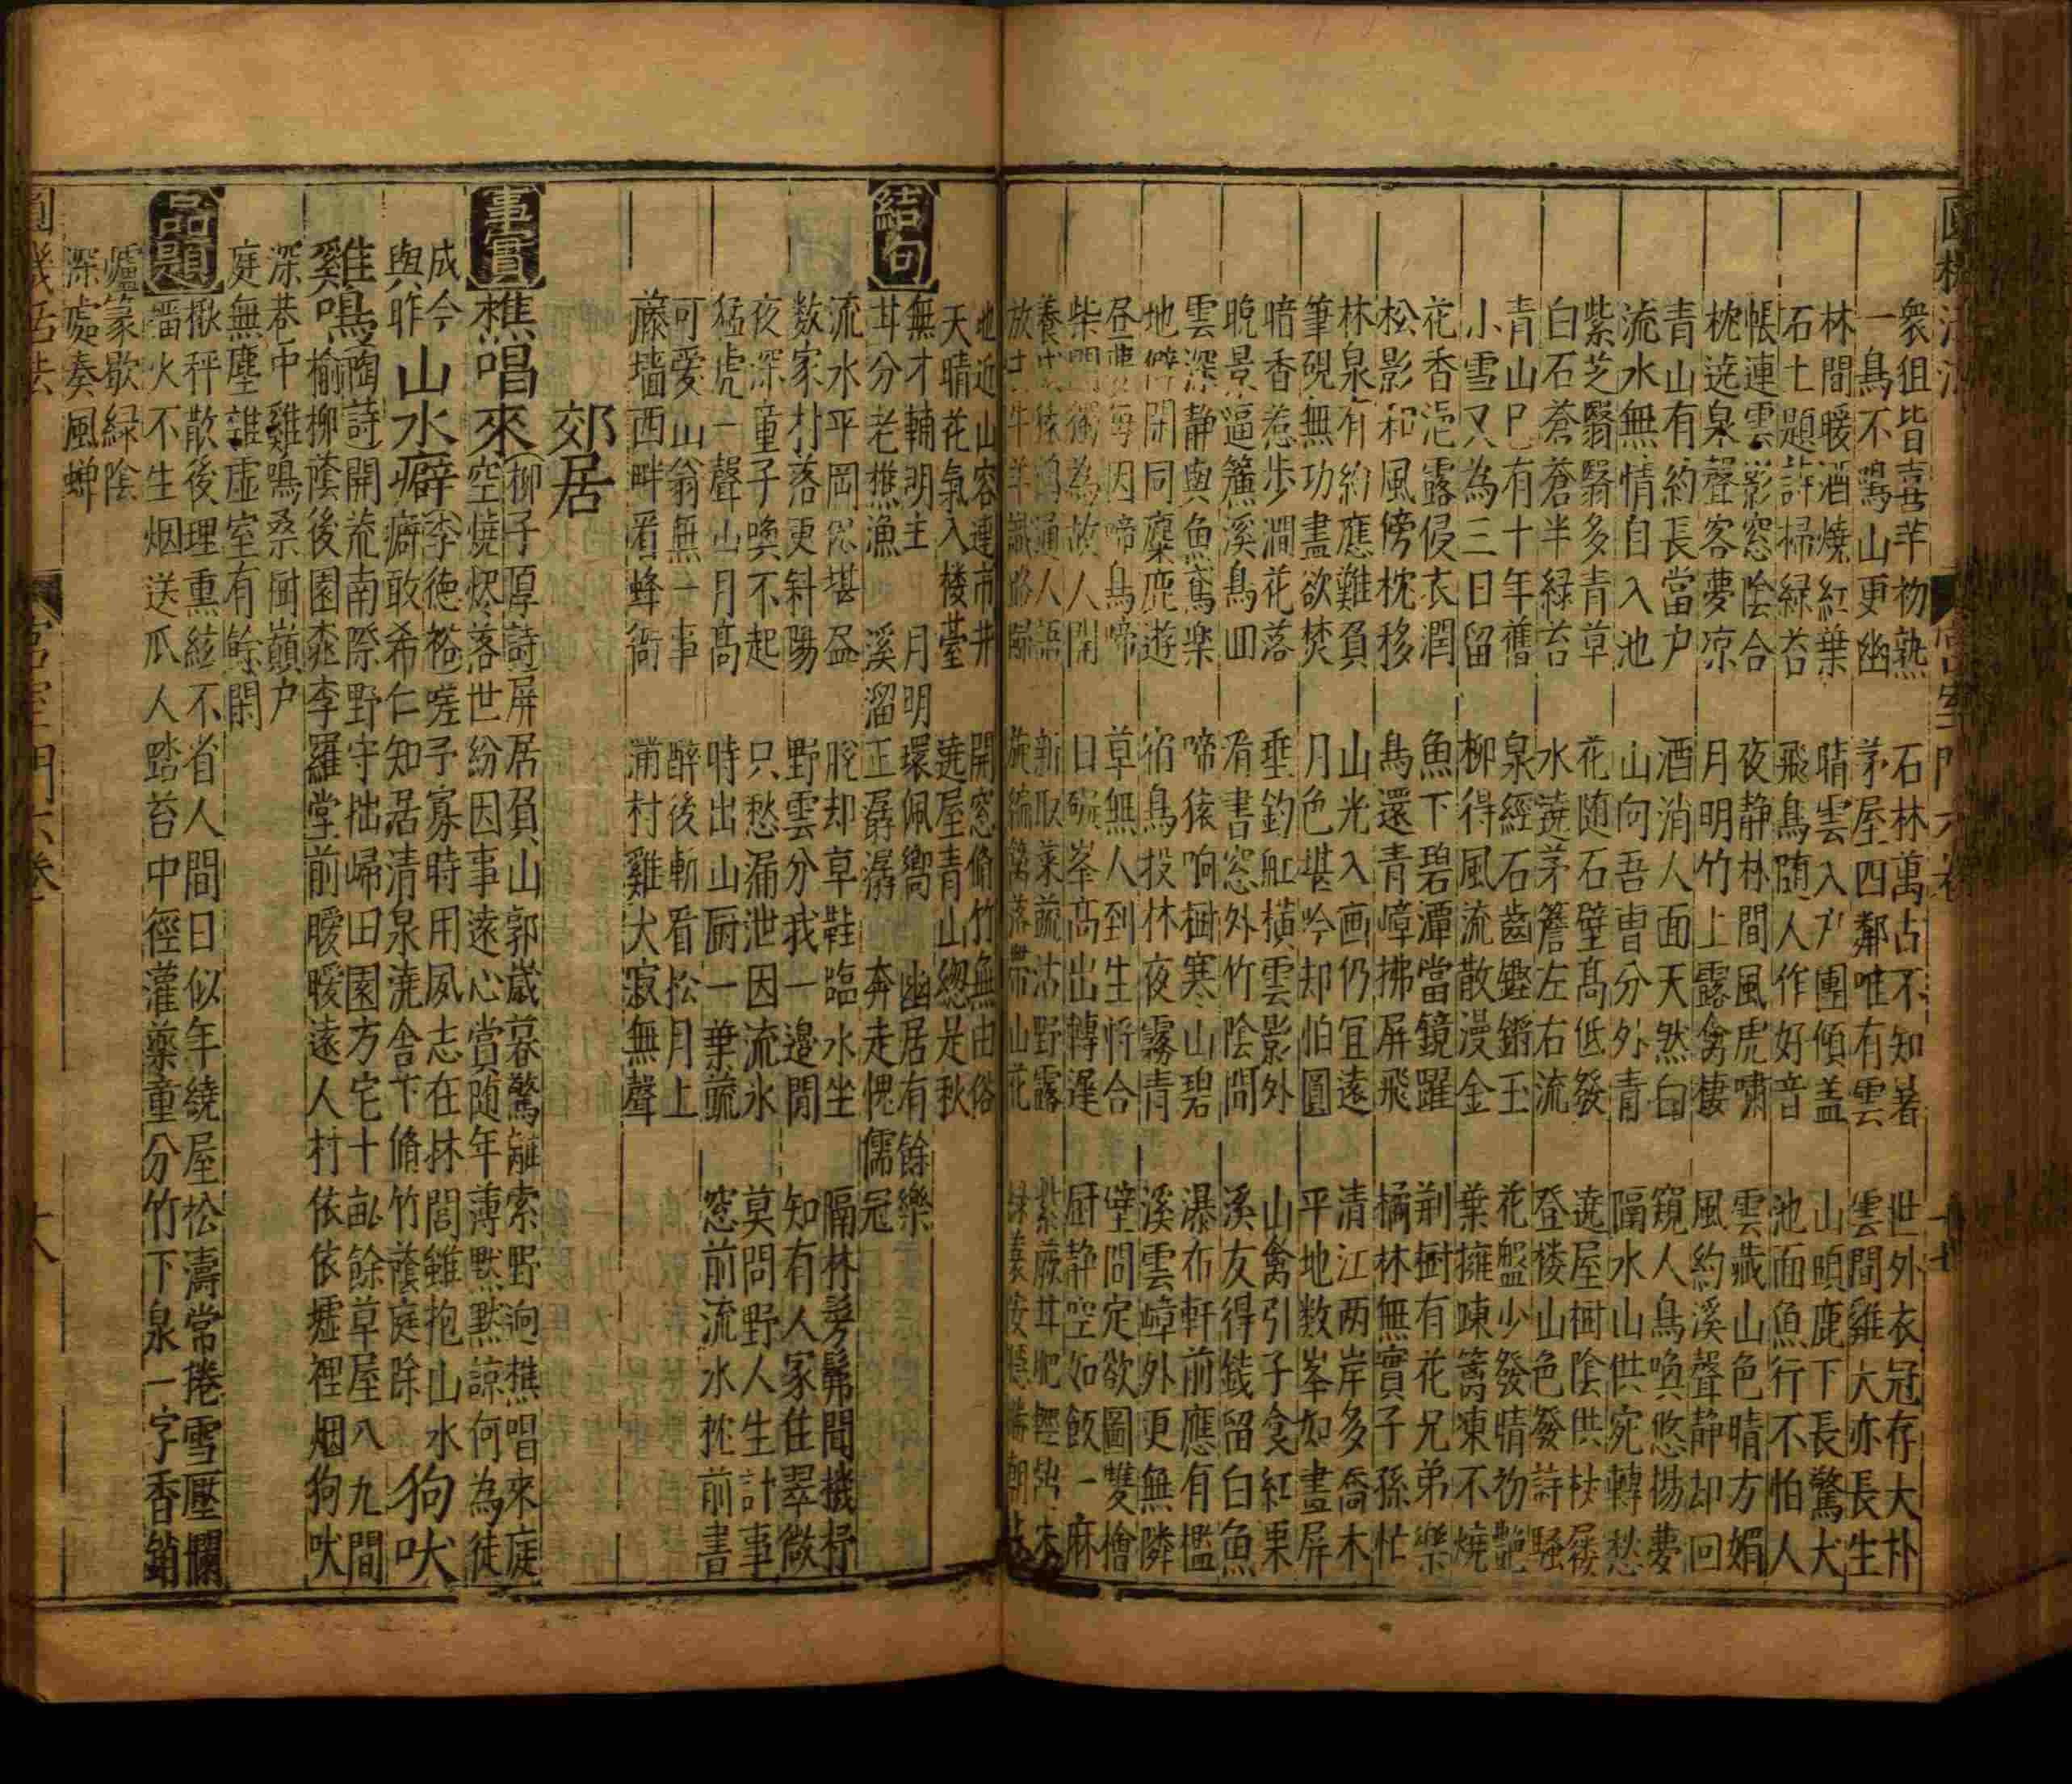 衆狙皆喜芋初熟 石林萬古不知暑 世外衣冠存大朴
一鳥不鳴山更幽 茅屋四鄰唯有雲 雲間雞犬亦長生
林間暖酒燒紅葉 晴雲入戶團傾盖 山頭鹿下長驚犬
石上題詩掃緑苔 飛鳥隨人作好音 池面魚行不怕人
帳連雲影窓陰合 夜静林間風虎嘯 雲藏山色晴方媚
枕遶泉聲客夢凉 月明竹上露禽棲 風約溪聲静却回
青山有約長當户 酒消人面天然白 窺人鳥喚悠揚夢
流水無情自入池 山向吾曹分外青 隔水山供宛轉愁
紫芝翳翳多青草 花随石壁高低發 遶屋樹陰供杖屨
白石蒼蒼半緑苔 水遶茅簷左右流 登楼山色發詩騷
青山已有十年舊 泉經石齒鏗鏘玉 花盤少發晴初艶
小雪又為三日留 柳得風流散漫金 葉擁疎篱凍不燒
花香浥露侵衣潤 魚下碧潭當鏡躍 荆樹有花兄弟樂
松影和風傍枕移 鳥還青嶂拂屏飛 橘林無實子孫忙
林泉有約應難負 山光入画仍宜遠 清江两岸多喬木
筆硯無功盡欲焚 月色堪吟却怕圓 平地数峯如畫屏
暗香惹步澗花落 垂釣舡横雲影外 山禽引子食紅栗
晚景逼簷溪鳥回 看書窓外竹陰間 溪友得錢留白魚
雲深静與魚鳶楽 啼猿响樹寒山碧 瀑布軒前應有檻
地僻閉同麋鹿遊 宿鳥投林夜霧青 溪雲嶂外更無隣
昼夢每因啼鳥啼 草無人到生將合 壁間定欲圖雙檜
柴門獨為故人開 日礙峯高出轉遲 厨静空如飯一麻
養猿鶴通人語 新取菜蔬沾野露 紫蕨甘肥輕
放牛羊識路歸 旋編篱落帶山花 安穩勝朝
地近山容連市井 開窓脩竹無由俗
天晴花氣入楼䑓 遶屋青山緫是秋
結句
無才輔明主 月明環佩響 幽居有餘樂
甘分老樵漁 溪溜正孱潺 奔走愧儒冠
流水平岡儘堪盃 脫却草鞋臨水坐 隔林旁髴聞機杼
数家村落更斜陽 野雲分我一邉閒 知有人家住翠微
夜深童子喚不起 只愁漏泄因流水 莫問野人生計事
猛虎一聲山月高 時出山厨一葉蔬 窓前流水枕前書
可愛山翁無一事 醉後斬看松月上
藤墻西畔看蜂衙 滿村雞犬寂無聲
郊居
事實
樵唱來 柳子厚詩屏居負山郭歲暮驚離索野迥樵唱來庭
空燒烬落世紛因事遠心賞随年薄默默諒何為徒
成今與昨 山水癖 李德裕嗟予寡時用夙志在林閭雖抱山水
癖敢希仁知居清泉澆舍下脩竹蔭庭除 狗吠
雞鳴 陶詩開荒南際野守拙歸田園方宅十畝餘草屋八九間
榆柳蔭後園桃李羅堂前曖曖遠人村依依墟裡烟狗吠
深巷中雞鳴桑樹巔户
庭無塵雜虛室有餘閑
品題
楸秤散後理熏絃不省人間日似年繞屋松濤常捲雪壓欄
不生烟送瓜人踏苔中徑灌藥童分竹下泉一字香銷
爐篆歇緑陰
深處奏風蟬